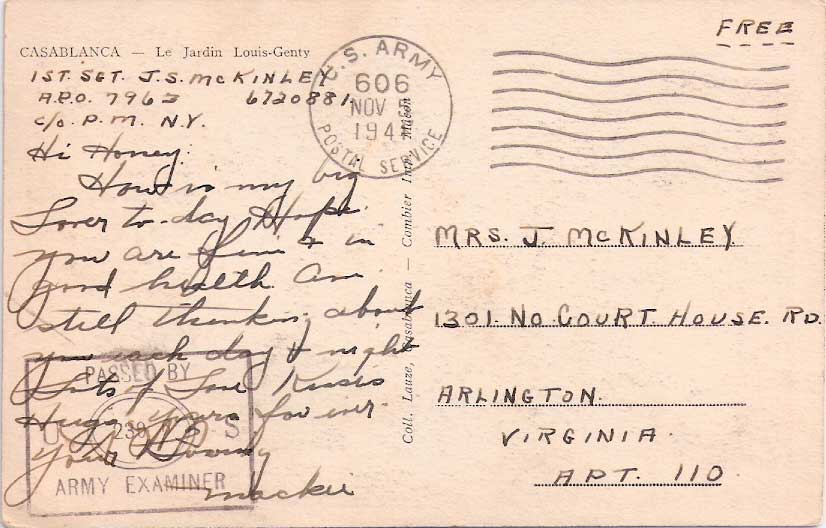 FREE
CASABLANCA — Le Jardin Louis-Genty
1ST. SGT. J.S. McKINLEY
A.P.O. 7963 6720881
c/o. P.M. N.Y.
Hi Honey.
How is my big
Lover to-day Hope
you are fine & in
good health. Am
still thinking about
you each day & night
Lots of Love Kisses
Hugs yours for ever
your Loving
Mackie
U.S. ARMY
606
NOV
194
POSTAL SERVICE
PASSED BY
U S
ARMY EXAMINER
Coll. Lauze, Casablanca — Combier Imp. Mâcon
MRS. J. McKINLEY
1301 NO. COURT HOUSE. RD.
ARLINGTON.
VIRGINIA.
APT. 110